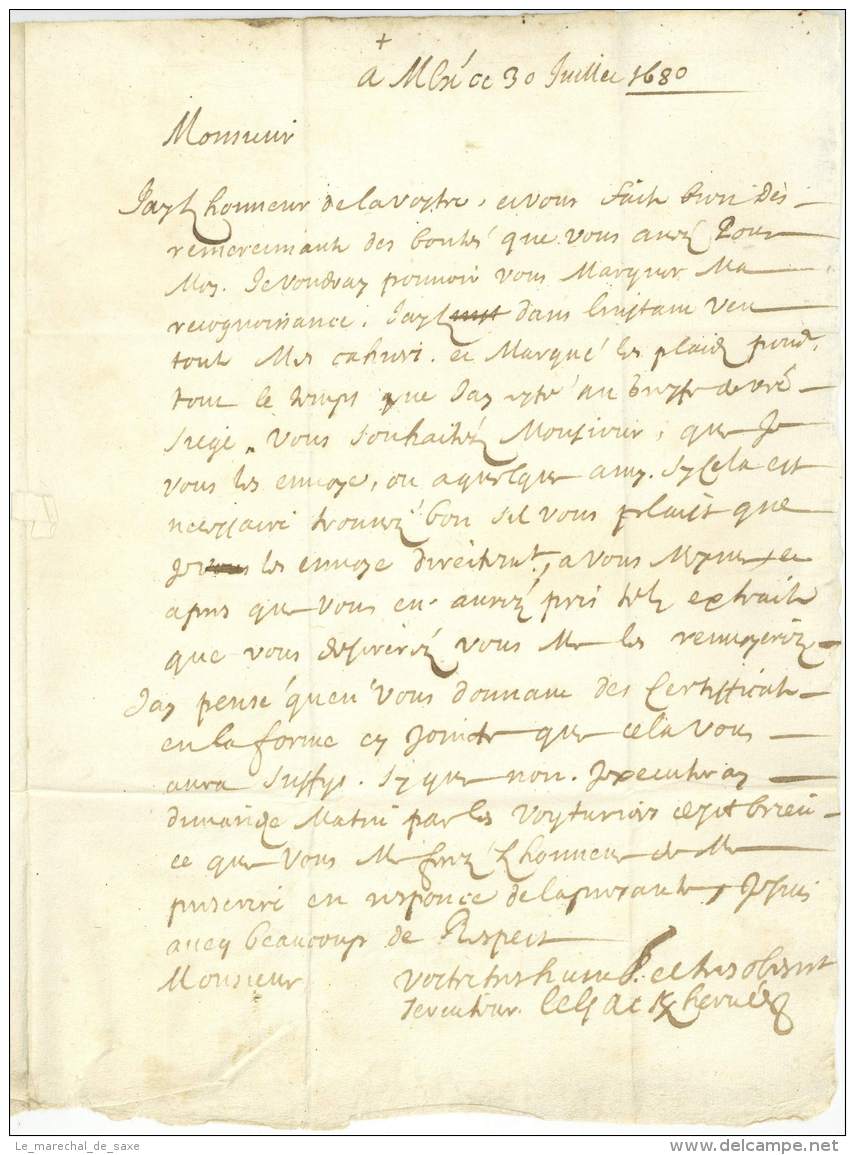 +
a ce 30 Juillet 1680
Monsieur
Jay lhonneur de la vostre, et vous fait bien des
remerciments des bontés que vous avez Pour
Moy. Je voudray pouvoir vous Marquer Ma
recognoissance. Jay dans linstant veu
tout Mes cahiers. et Marqué les plaids pend.
tout le temps que Jay esté au de
Siege. Vous souhaitez Monsieur, que Je
vous les envoye, ou a quelque amy. Sy cela est
necessaire trouvez bon sil vous plaist que
Je les envoye directemt. a vous Mesme et
apres que vous en aurez pris tels extraits
que vous desirerez vous Me les renvoyerez
Jay pensé quen vous donnant des Certifficats
en la forme cy jointe que cela vous
aura suffys. Sy que non. Jexecuteray
dimanche Matin par les voyturiers de St brieu
ce que vous Me ferez lhonneur de Me
prescrire en responce de la presante, Je suis
avecq beaucoup de Respect
Monsieur vostre tres humb. et tres obeisst
serviteur.
Le_marechal_de_saxe
www.delcampe.net